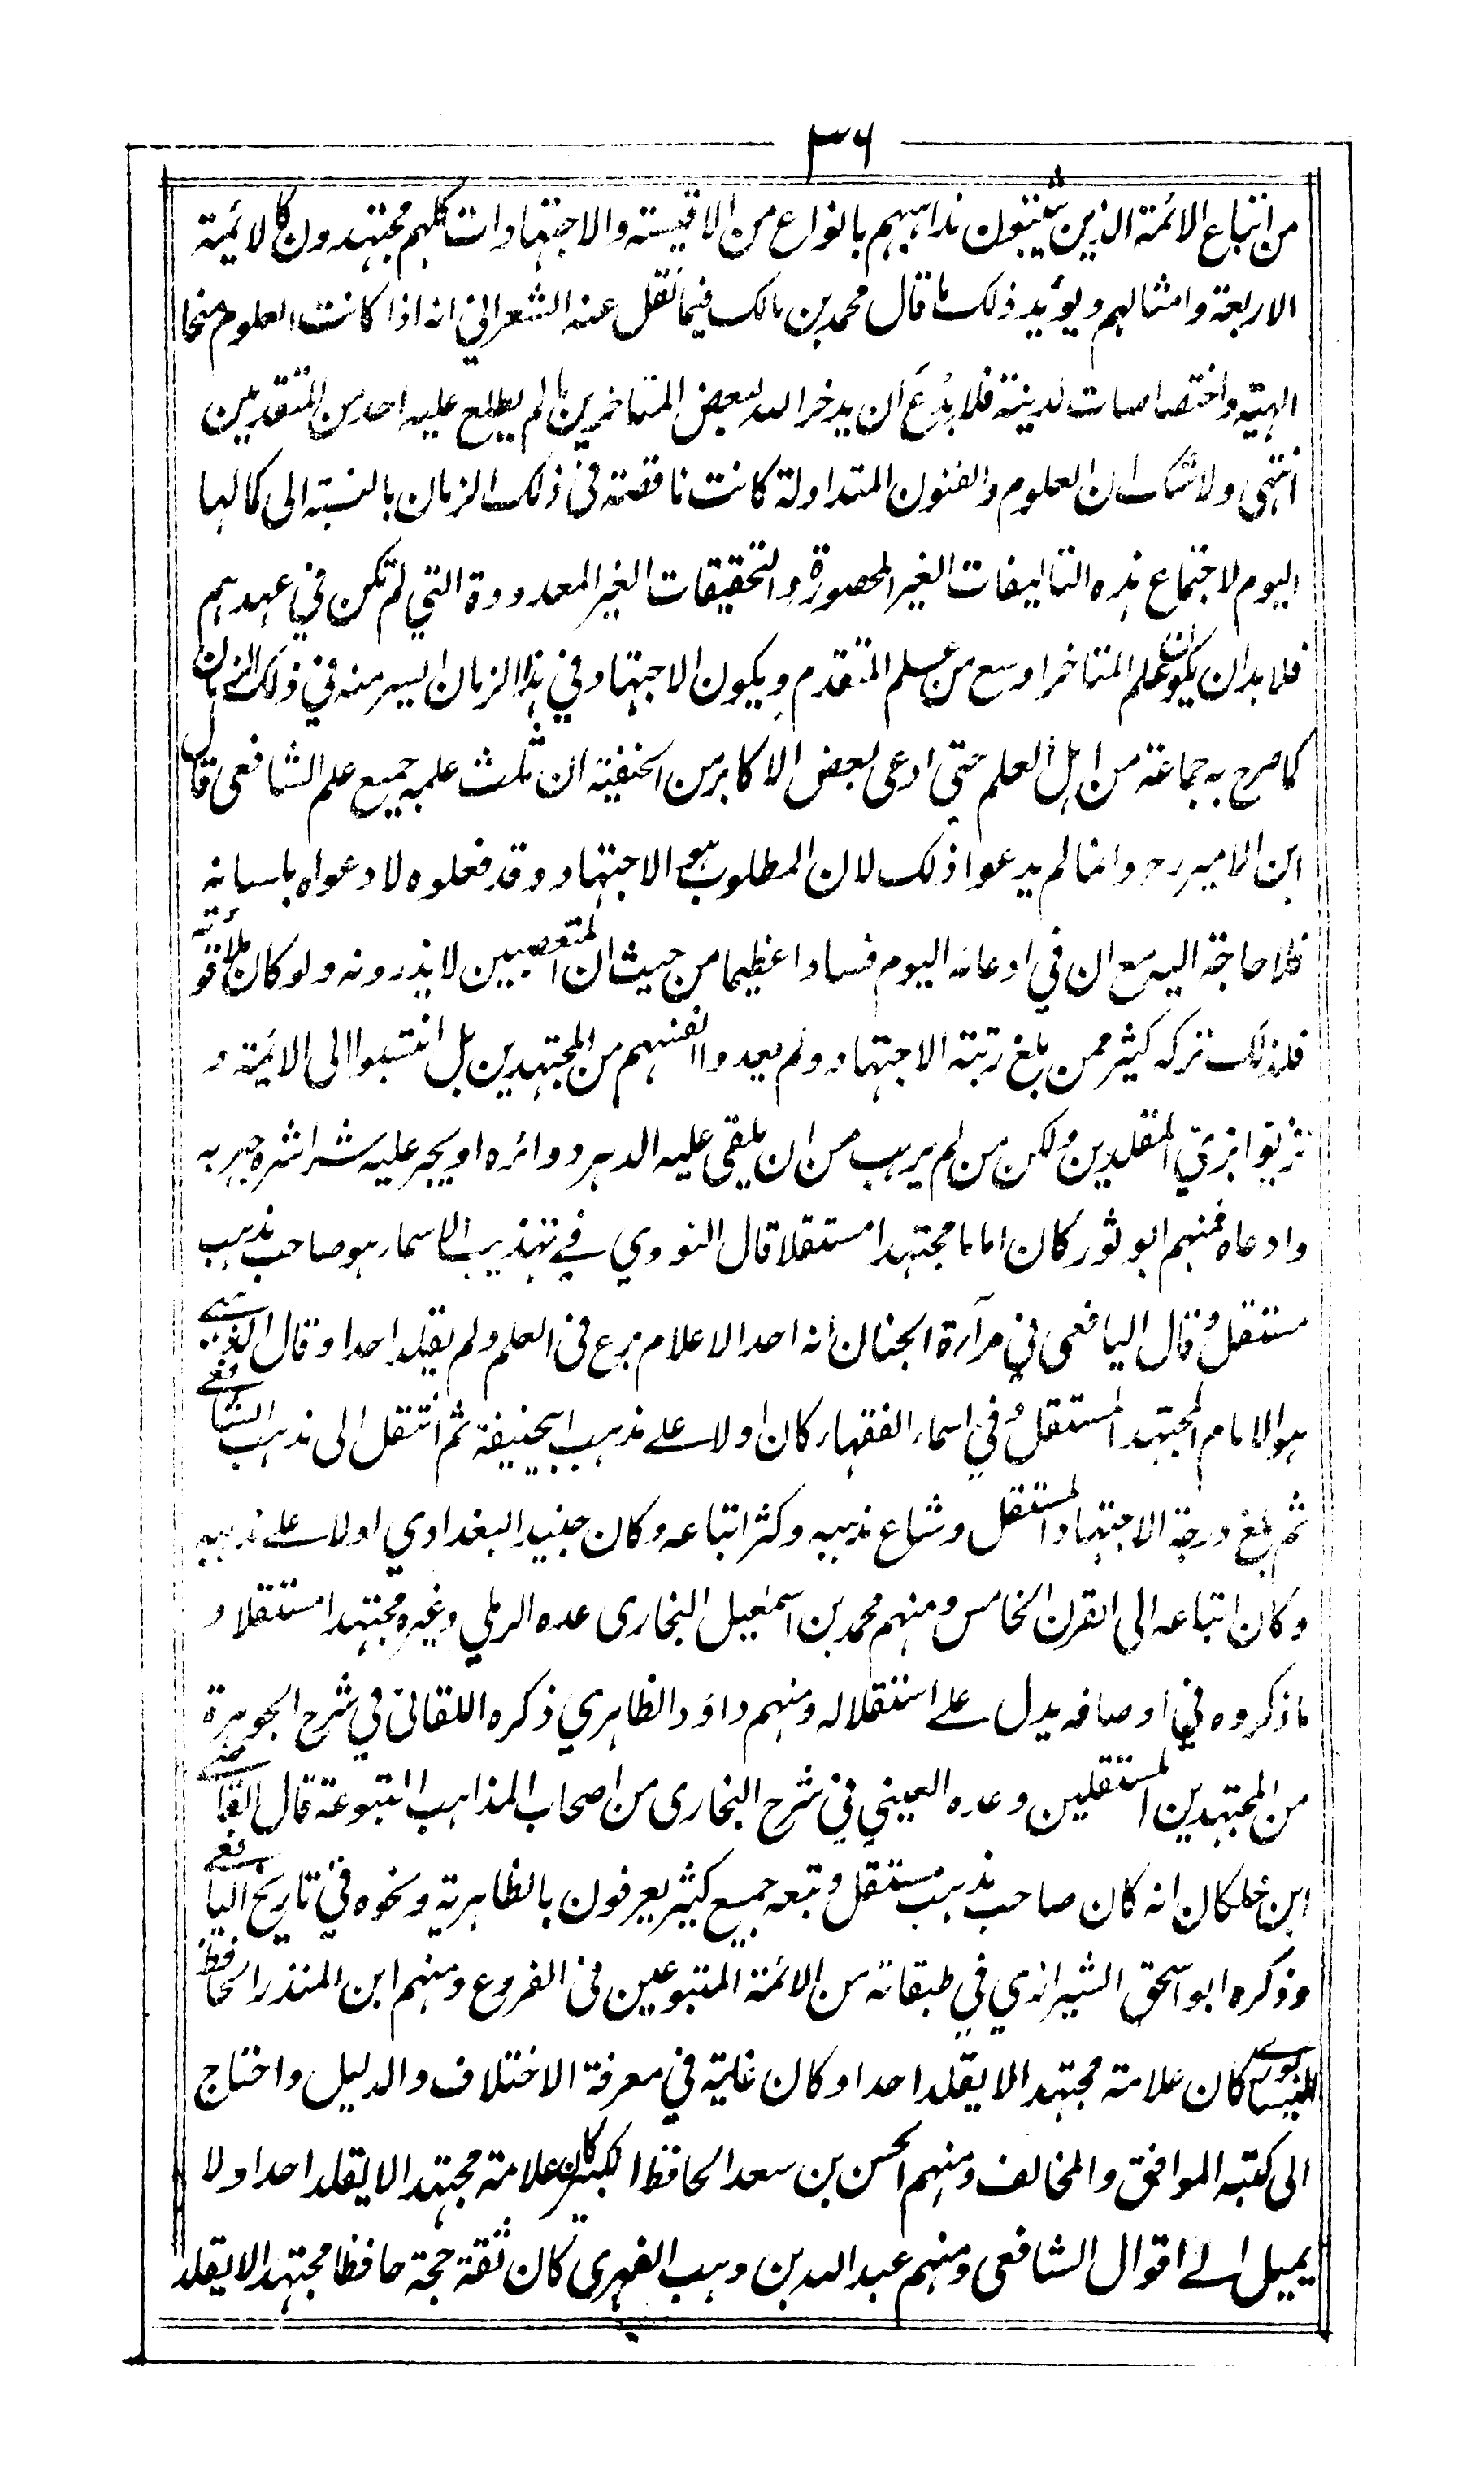 ٣٦
من اتباع الائمة الذين يثبتون مذاهبهم بانواع من الاقيسة والاجتهادات كلهم مجتهدون كالائمة
الاربعة وامثالهم ويؤيد ذلك ما قال محمد بن مالك فيما نقل عنه الشعراني انه اذا كانت العلوم منحا
الهية واختصاصات لدنية فلا بدع ان يدخر الله لبعض المتاخرين ما لم يطلع عليه احد من المتقدمين
انتهى ولا شك ان العلوم والفنون المتداولة كانت ناقصة في ذلك الزمان بالنسبة الى كمالها
اليوم لاجتماع هذه التاليفات الغير المحصورة والتحقيقات الغير المعدودة التي لم تكن في عهدهم
فلا بد ان يكون علم المتاخر اوسع من علم المتقدم ويكون الاجتهاد في هذا الزمان ايسر منه في ذلك الزمان
كما صرح به جماعة من اهل العلم حتى ادعى بعض الاكابر من الحنفية ان ثلث علمه جميع علم الشافعي قال
ابن الامير رح وانما لم يدعوا ذلك لان المطلوب هو الاجتهاد وقد فعلوه لا دعواه باللسان
فلا حاجة اليه مع ان في ادعائه اليوم فسادا عظيما من حيث ان المتعصبين لا يذرونه ولو كان
فلذلك تركه كثير ممن بلغ رتبة الاجتهاد ولم يعدوا انفسهم من المجتهدين بل انتسبوا الى الائمة و
تزيوا بزي المقلدين ولكن من لم يرهب من ان يلقى عليه الدهر دوائره او يجر عليه شراشره جهر به
وادعاه فمنهم ابو ثور كان اماما مجتهدا مستقلا قال النووي في تهذيب الاسماء هو صاحب مذهب
مستقل وقال اليافعي في مرآة الجنان انه احد الاعلام برع في العلم ولم يقلد احدا وقال
هو الامام المجتهد المستقل وفي اسماء الفقهاء كان اولا على مذهب ابيحنيفة ثم انتقل الى مذهب الشافعي
ثم بلغ درجة الاجتهاد المستقل وشاع مذهبه وكثر اتباعه وكان جنيد البغدادي اولا على مذهبه
وكان اتباعه الى القرن الخامس ومنهم محمد بن اسمعيل البخاري عده الرملي وغيره مجتهدا مستقلا و
ما ذكروه في اوصافه يدل على استقلاله ومنهم داؤد الظاهري ذكره اللقاني في شرح الجوهرة
من المجتهدين المستقلين وعده العيني في شرح البخاري من اصحاب المذاهب المتبوعة قال القاضي
ابن خلكان انه كان صاحب مذهب مستقل وتبعه جميع كثير يعرفون بالظاهرية ونحوه في تاريخ اليافعي
وذكره ابو اسحق الشيرازي في طبقاته من الائمة المتبوعين في الفروع ومنهم ابن المنذر الحافظ
النيسابوري كان علامة مجتهدا لا يقلد احدا وكان غاية في معرفة الاختلاف والدليل واحتاج
الى كتبه الموافق والمخالف ومنهم الحسن بن سعد الحافظ الكبير كان علامة مجتهدا لا يقلد احدا ولا
يميل الى اقوال الشافعي ومنهم عبد الله بن وهب الفهري كان ثقة حجة حافظا مجتهدا لا يقلد